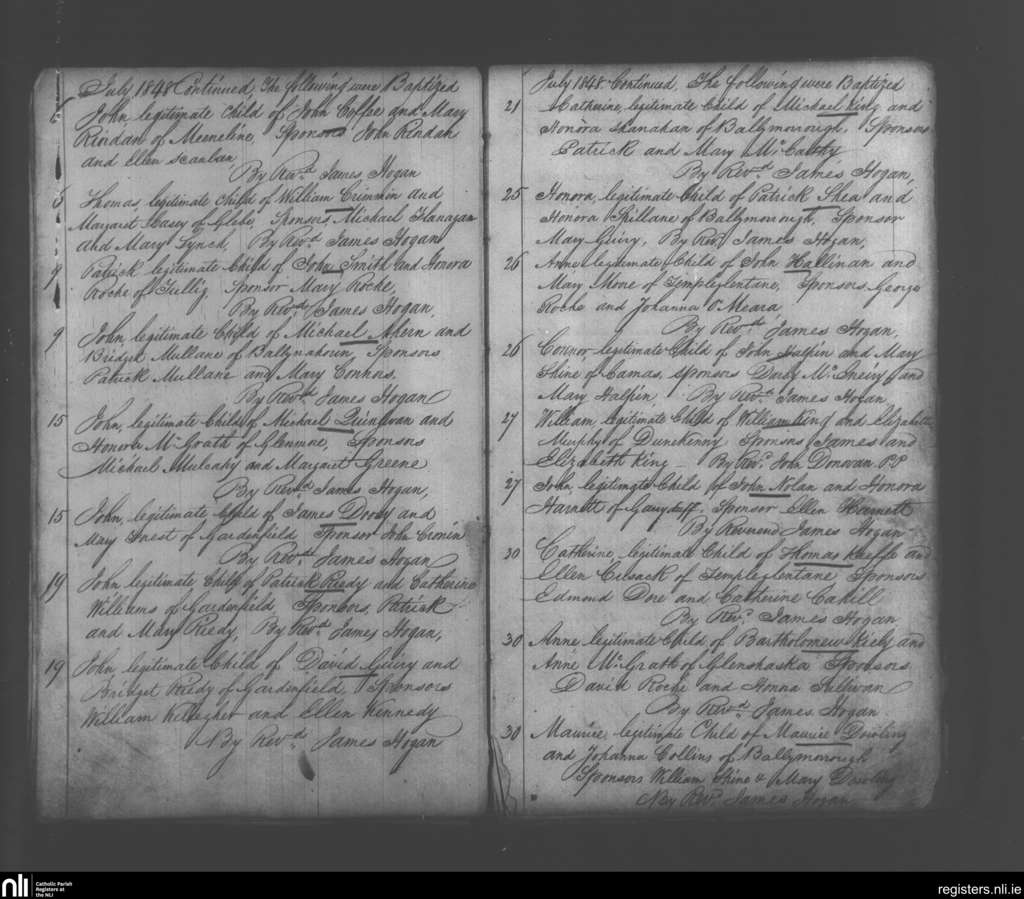 July 1848 Continued, The following were Baptized
6 John legitimate child of John Coffee and Mary
Rindan of Meeneline, Sponsors John Rindan
and Ellen Scanlan
By Revd. James Hogan
8 Thomas, legitimate child of William Crimmin and
Margaret Casey of Glebe, Sponsors, Michael Flanagan
and Mary Lynch, By Revd. James Hogan
9 Patrick legitimate Child of John Smith and Honora
Roche of Tullig Sponsor Mary Roche,
By Revd. James Hogan,
9 John, legitimate Child of Michael Ahern and
Bridget Mullane of Ballynahown, Sponsors
Patrick Mullane and Mary Connors,
By Revd. James Hogan
15 John, legitimate Child of Michael Quinlivan and
Honora Mc Grath of Glenmore, Sponsors
Michael Mulcahy and Margaret Greene
By Revd. James Hogan,
15 John, legitimate Child of James Doody and
Mary of Gardenfield, Sponsor John Cronin
By Revd. James Hogan
19 John legitimate Child of Patrick Reidy and Catherine
Williams of Gardenfield Sponsors, Patrick
and Mary Riedy, By Revd. James Hogan,
19 John, legitimate Child of David Guiry and
Bridget Riedy of Gardenfield, Sponsors
William Killegher and Ellen Kennedy
By Revd. James Hogan
July 1848 Continued, The following were Baptized
21 Catherine, legitimate Child of Michael King and
Honora Shanahan of Ballymorough, Sponsors
Patrick and Mary Mc Carthy
By Revd. James Hogan,
25 Honora, legitimate Child of Patrick Shea and
Honora Skillane of Ballymorough, Sponsor
Mary Guiry, By Revd. James Hogan,
26 Anne legitimate Child of John Hallinan and
Mary Mone of Templeglentane, Sponsors, George
Roche and Johanna O'Meara
By Revd. James Hogan,
26 Connor legitimate Child of John Halpin and Mary
Shine of Camas, Sponsors Darby Mc Eneiry, and
Mary Halpin, By Revd. James Hogan
27 William, legitimate Child of William King and Elizabeth
Murphy of Dunekenny Sponsors James and
Elizabeth King - By Revd. John Donovan P.P
27 John, legitimate Child of John Nolan and Honora
Harnett of Garryduff, Sponsor Ellen Harnett
By Reverend James Hogan
30 Catherine, legitimate Child of Thomas Keeffe and
Ellen Cusack of Templeglentane, Sponsors
Edmond Dore and Catherine Cahill
By Revd. James Hogan
30 Anne, legitimate Child of Bartholomew Kiely and
Anne Mc Grath of Glenshaska Sponsors
David Roche and Honna Sullivan
By Revd. James Hogan
30 Maurice, legitimate Child of Maurice Dowling
and Johanna Collins of Ballymorough
Sponsors William Shine & Mary Dowling
By Revd. James Hogan
nli Catholic Parish
Registers at
the NLI
registers.nli.ie